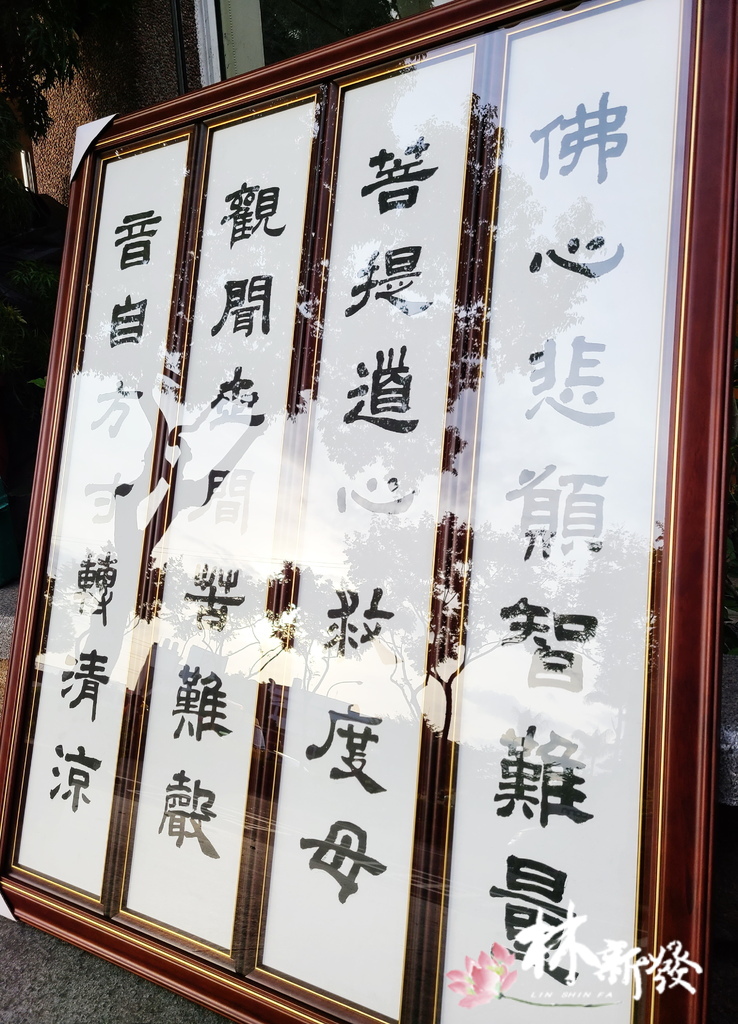 佛心悲願智難量
菩提道心救度母
觀聞世間苦難聲
音自方寸轉清涼
林新發
LIN SHIN FA